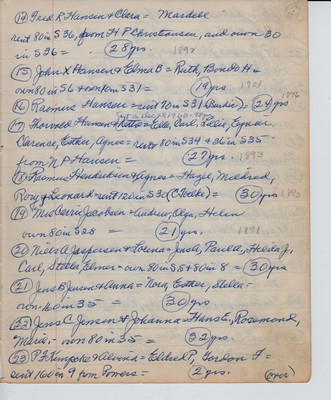 (14) Fred R Hansen & Clara = Mardell
rent 80 in S36, from H P Christiansen, and own 30
in S36 = (28) yrs. 1892
(15) John X Hansen & Elma B = Ruth, Bondo H =
own 80 in S6 & own 80 in S31 = (19) yrs. 1901
(16) Rasmus Hansen = rent 70 in S31 = (24) yrs 1896
(17) Thorvald Hansen & = Ella, Carl, Lillie, Eynar
Clarence, Esther, Agnes = rent 80 in S34 & 36 in S35
from N P Hansen = (27) yrs. 1893
(18) Rasmus Hendriksen & Agnes = Hazel, Mildred,
Roy & Leonard = rent 120 in S30 = (30) yrs 1890
(19) Mrs Jacobsen = Andrew, Olga, Helen
own 80 in S28 = (21) yrs. 1891
(20) Niels A Jespersen & Lorena = Jens A, Paul A, Hilda J,
Carl, Stella, Elmer = own 80 in S5 & 80 in 8 = (30) yrs
(21) Jens B Jensen & Anna = Nora, Esther, Stella =
own 160 in 35 = (30) yrs.
(22) Jens C Jensen & Johanna = Hans E, Rosemond,
Marie = own 80 in 35 = (32) yrs.
(23) P F Kempske & Alvina = Eldred P, Gordon F =
rent 160 in 9 from Powers = (2) yrs. (over)